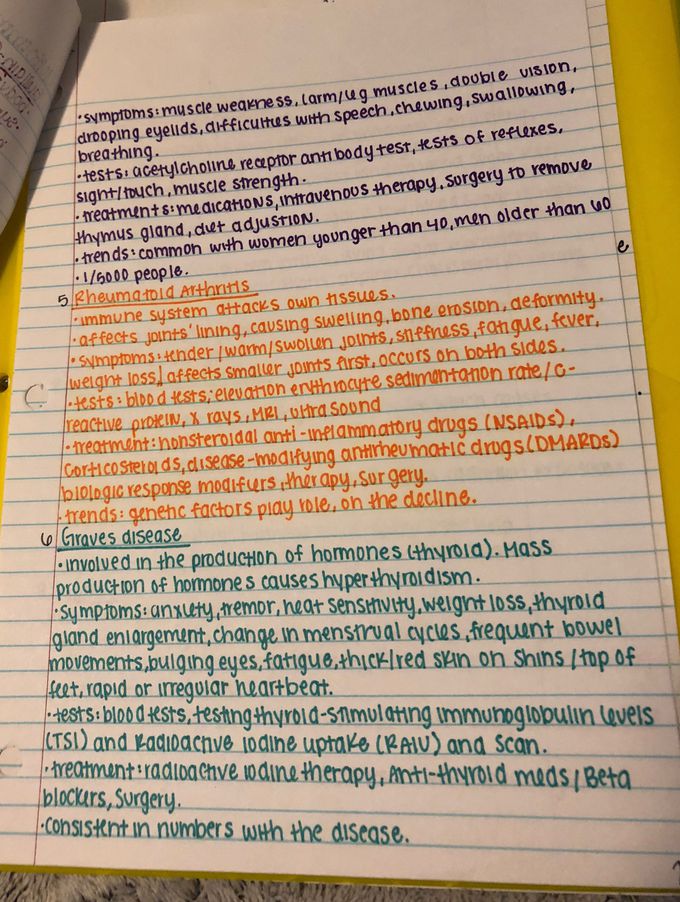 •symptoms: muscle weakness, (arm/leg muscles, double vision,
drooping eyelids, difficulties with speech, chewing, swallowing,
breathing.
•tests: acetylcholine receptor antibody test, tests of reflexes,
sight/touch, muscle strength.
•treatments: medications, intravenous therapy, surgery to remove
thymus gland, diet adjustion.
•trends: common with women younger than 40, men older than 60
•1/5000 people.
e
5 Rheumatoid Arthritis
•immune system attacks own tissues.
•affects joints' lining, causing swelling, bone erosion, deformity.
•symptoms: tender/warm/swollen joints, stiffness, fatigue, fever,
weight loss/ affects smaller joints first, occurs on both sides.
•tests: blood tests; elevation erythrocyte sedimentation rate/c-
reactive protein, x rays, MRI, ultra sound
•treatment: nonsteroidal anti-inflammatory drugs (NSAIDs),
corticosteroids, disease-modifying antirheumatic drugs (DMARDs)
biologic response modifiers, therapy, surgery.
•trends: genetic factors play role, on the decline.
6 Graves disease
•involved in the production of hormones (thyroid). Mass
production of hormones causes hyperthyroidism.
•symptoms: anxiety, tremor, heat sensitivity, weight loss, thyroid
gland enlargement, change in menstrual cycles, frequent bowel
movements, bulging eyes, fatigue, thick/red skin on shins/top of
feet, rapid or irregular heartbeat.
•tests: blood tests, testing thyroid-stimulating immunoglobulin levels
(TSI) and Radioactive iodine uptake (RAIU) and scan.
•treatment: radioactive iodine therapy, Anti-thyroid meds/Beta
blockers, surgery.
•consistent in numbers with the disease.